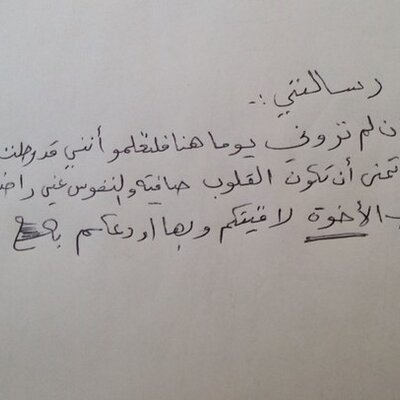 رسالتي :..
ن لم تروني يوما هنا فلتعلمو أنني قد رحلت
تمنى أن تكون القلوب صافية والنفوس عني راض
ب الأخوة لاقيتكم وبها اودعكم